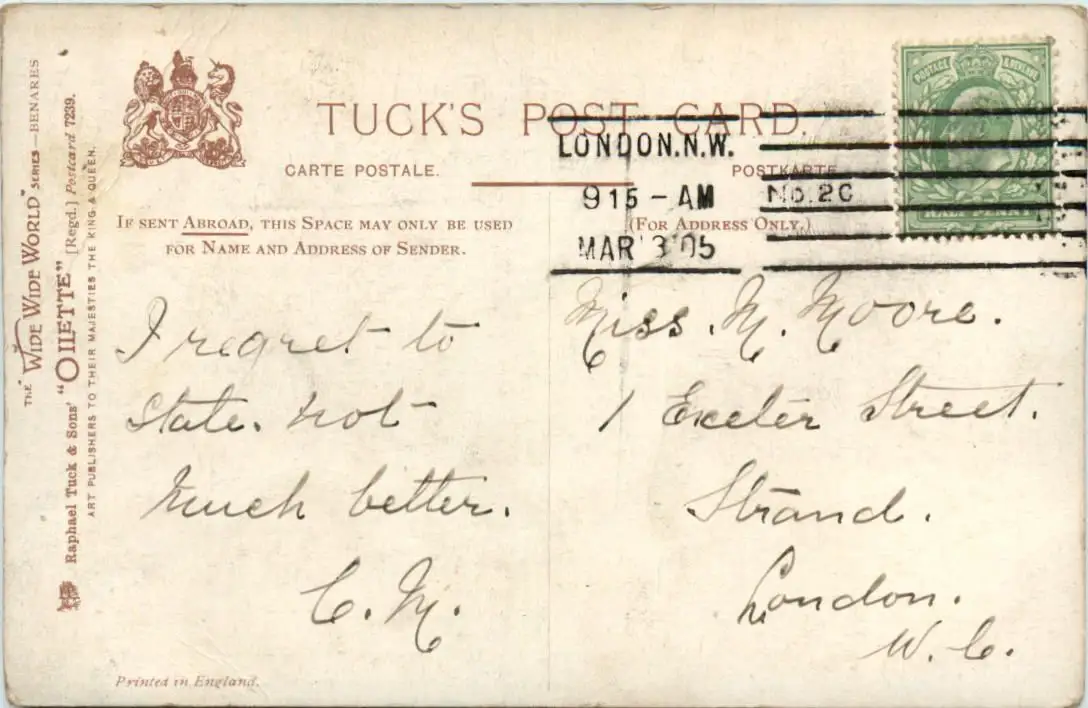 THE "WIDE WIDE WORLD" SERIES — BENARES
Raphael Tuck & Sons' "OILETTE" [Regd.] Postcard 7239.
ART PUBLISHERS TO THEIR MAJESTIES THE KING & QUEEN.
TUCK'S POST CARD.
CARTE POSTALE. POSTKARTE
IF SENT ABROAD, THIS SPACE MAY ONLY BE USED
FOR NAME AND ADDRESS OF SENDER.
(FOR ADDRESS ONLY.)
POSTAGE & REVENUE
HALF PENNY
LONDON.N.W.
9 15 - AM No. 2C
MAR 3 05
I regret to
state. not
much better.
C. M.
Miss. M. Moore.
1 Exeter Street.
Strand.
London.
W. C.
Printed in England.